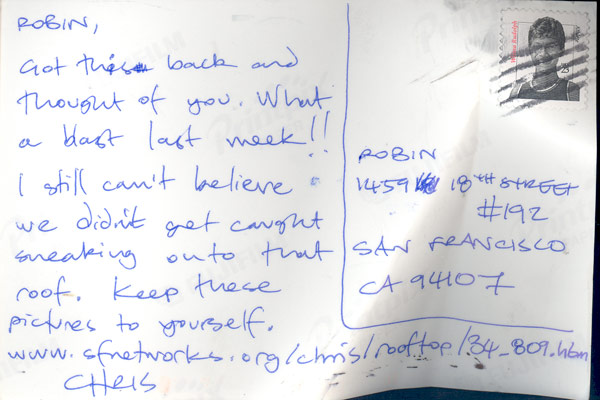 ROBIN,
Got this back and
thought of you. What
a blast last week!!
I still can't believe
we didn't get caught
sneaking onto that
roof. Keep these
pictures to yourself.
www.sfnetworks.org/chris/rooftop/34_809.htm
CHRIS
ROBIN
1459 18TH STREET
#192
SAN FRANCISCO
CA 94107